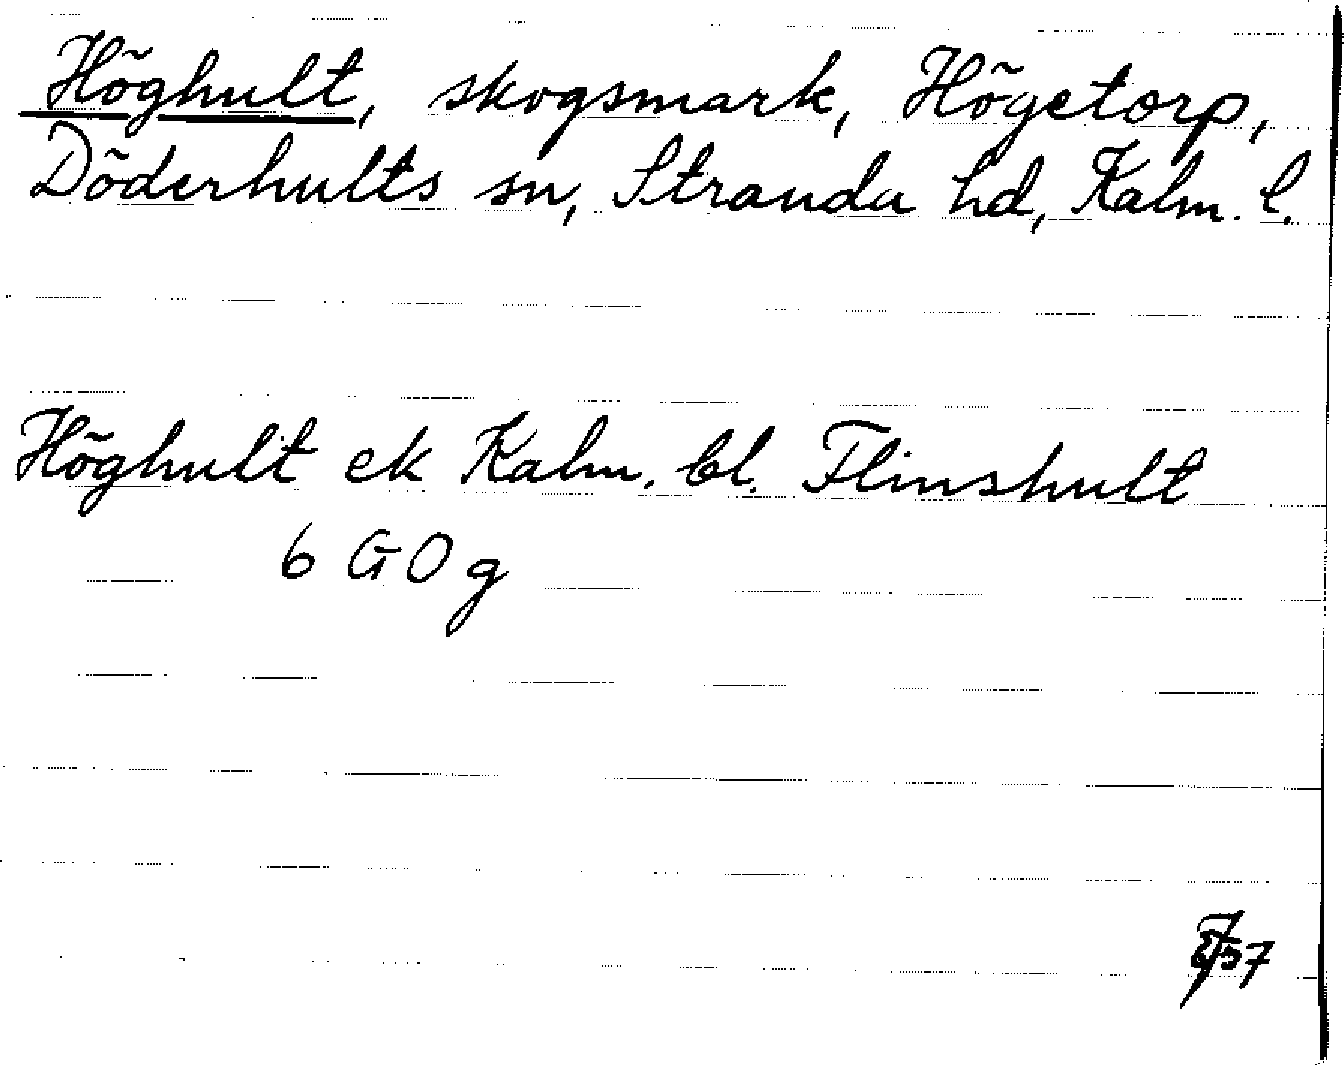 Höghult, skogsmark, Högetorp,
Döderhults sn, Stranda hd, Kalm. l.
Höghult ek Kalm. bl. Flinshult
6 G O g
57